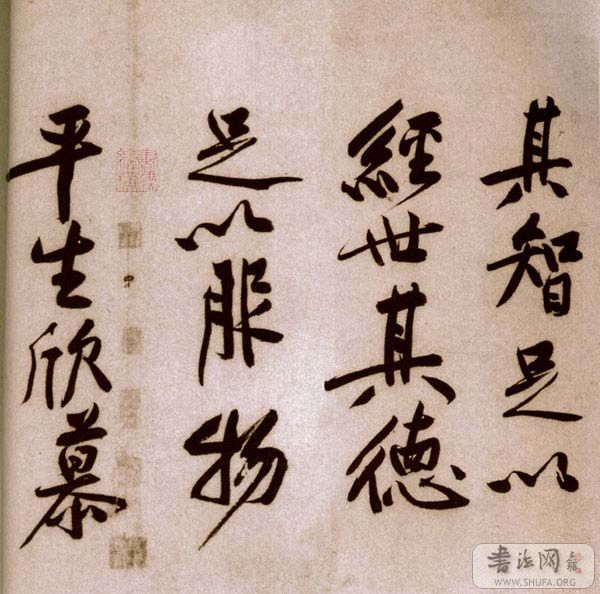 其智足以
經世其德
足以服物
平生欣慕
書法网
WWW.SHUFA.ORG